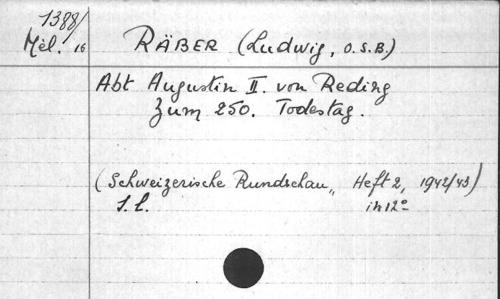 1388/
Mél. 16
RÄBER (Ludwig, O.S.B.)
Abt Augustin II. von Reding
zum 250. Todestag.
(Schweizerische Rundschau, Heft 2, 1942/43)
S.l. in 12°